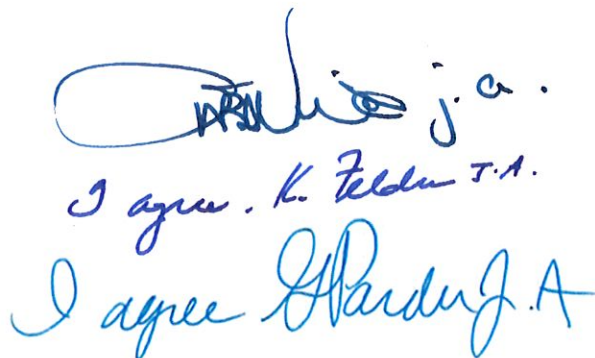 j.a.
I agree. K. Feldman J.A.
I agree G Pardu J.A